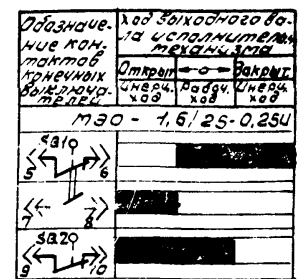 Обозначе-
ние кон-
тактов
конечных
выключа-
телей
ход выходного ва-
ла исполнительн.
механизма
Открыт
Закрыт
Инерц.
ход
Рабоч.
ход
Инерц.
ход
МЭО - 1,6/25-0,25У
SQ1
5 6
7 8
SQ2
9 10